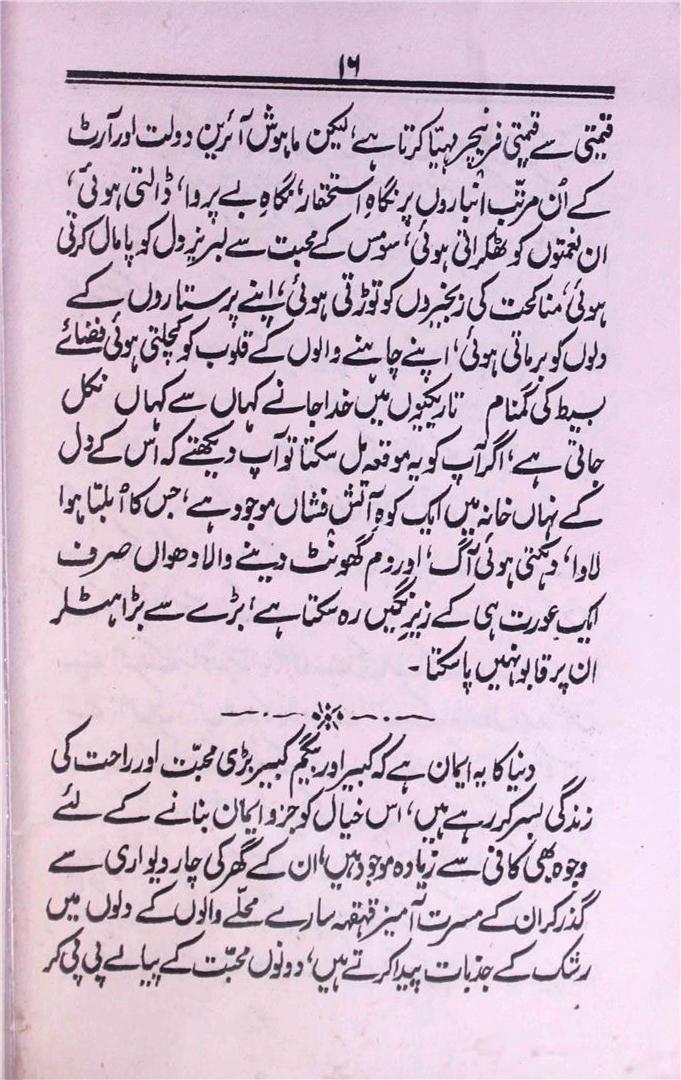 ۱۶
قیمتی سے قیمتی فرنیچر مہیّا کرتا ہے، لیکن ماہوش آئرین دولت اور آرٹ
کے اُن مرتّب انباروں پر نگاہِ استحقار، نگاہِ بے پروا، ڈالتی ہوئی،
ان نعمتوں کو ٹھکراتی ہوئی، سومس کے محبت سے لبریز دل کو پامال کرتی
ہوئی، مناکحت کی زنجیروں کو توڑتی ہوئی، اپنے پرستاروں کے
دلوں کو برماتی ہوئی، اپنے چاہنے والوں کے قلوب کو کچلتی ہوئی فضائے
بسیط کی گمنام تاریکیوں میں خدا جانے کہاں سے کہاں نکل
جاتی ہے، اگر آپ کو یہ موقعہ مل سکتا تو آپ دیکھتے کہ اس کے دل
کے نہاں خانہ میں ایک کوہِ آتش فشاں موجود ہے، جس کا اُبلتا ہوا
لاوا، دہکتی ہوئی آگ، اور دم گھونٹ دینے والا دھواں صرف
ایک عورت ہی کے زیرِ نگیں رہ سکتا ہے، بڑے سے بڑا ہٹلر
ان پر قابو نہیں پا سکتا۔
دنیا کا یہ ایمان ہے کہ کبیر اور بیگم کبیر بڑی محبّت اور راحت کی
زندگی بسر کر رہے ہیں، اس خیال کو جزوِ ایمان بنانے کے لئے
وجوہ بھی کافی سے زیادہ موجود ہیں، ان کے گھر کی چار دیواری سے
گذر کر ان کے مسرت آمیز قہقہہ سارے محلّے والوں کے دلوں میں
رشک کے جذبات پیدا کرتے ہیں، دونوں محبّت کے پیالے پی پی کر